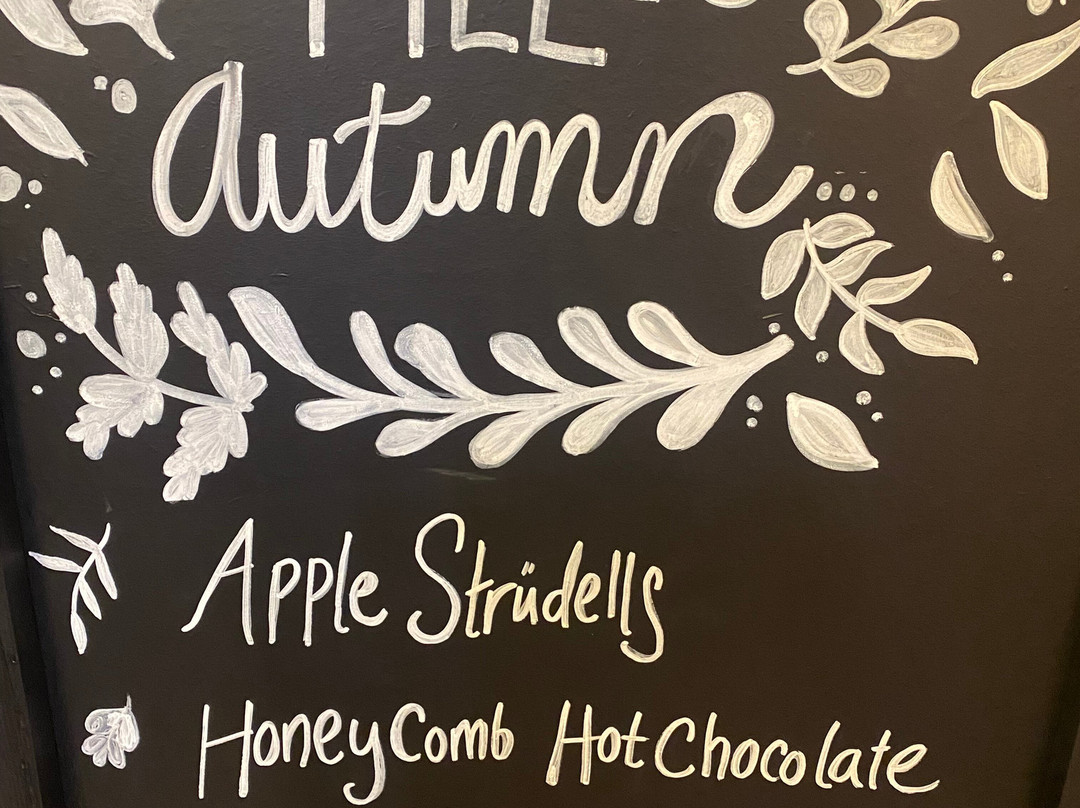 Autumn
Apple Strüdells
HoneyComb HotChocolate